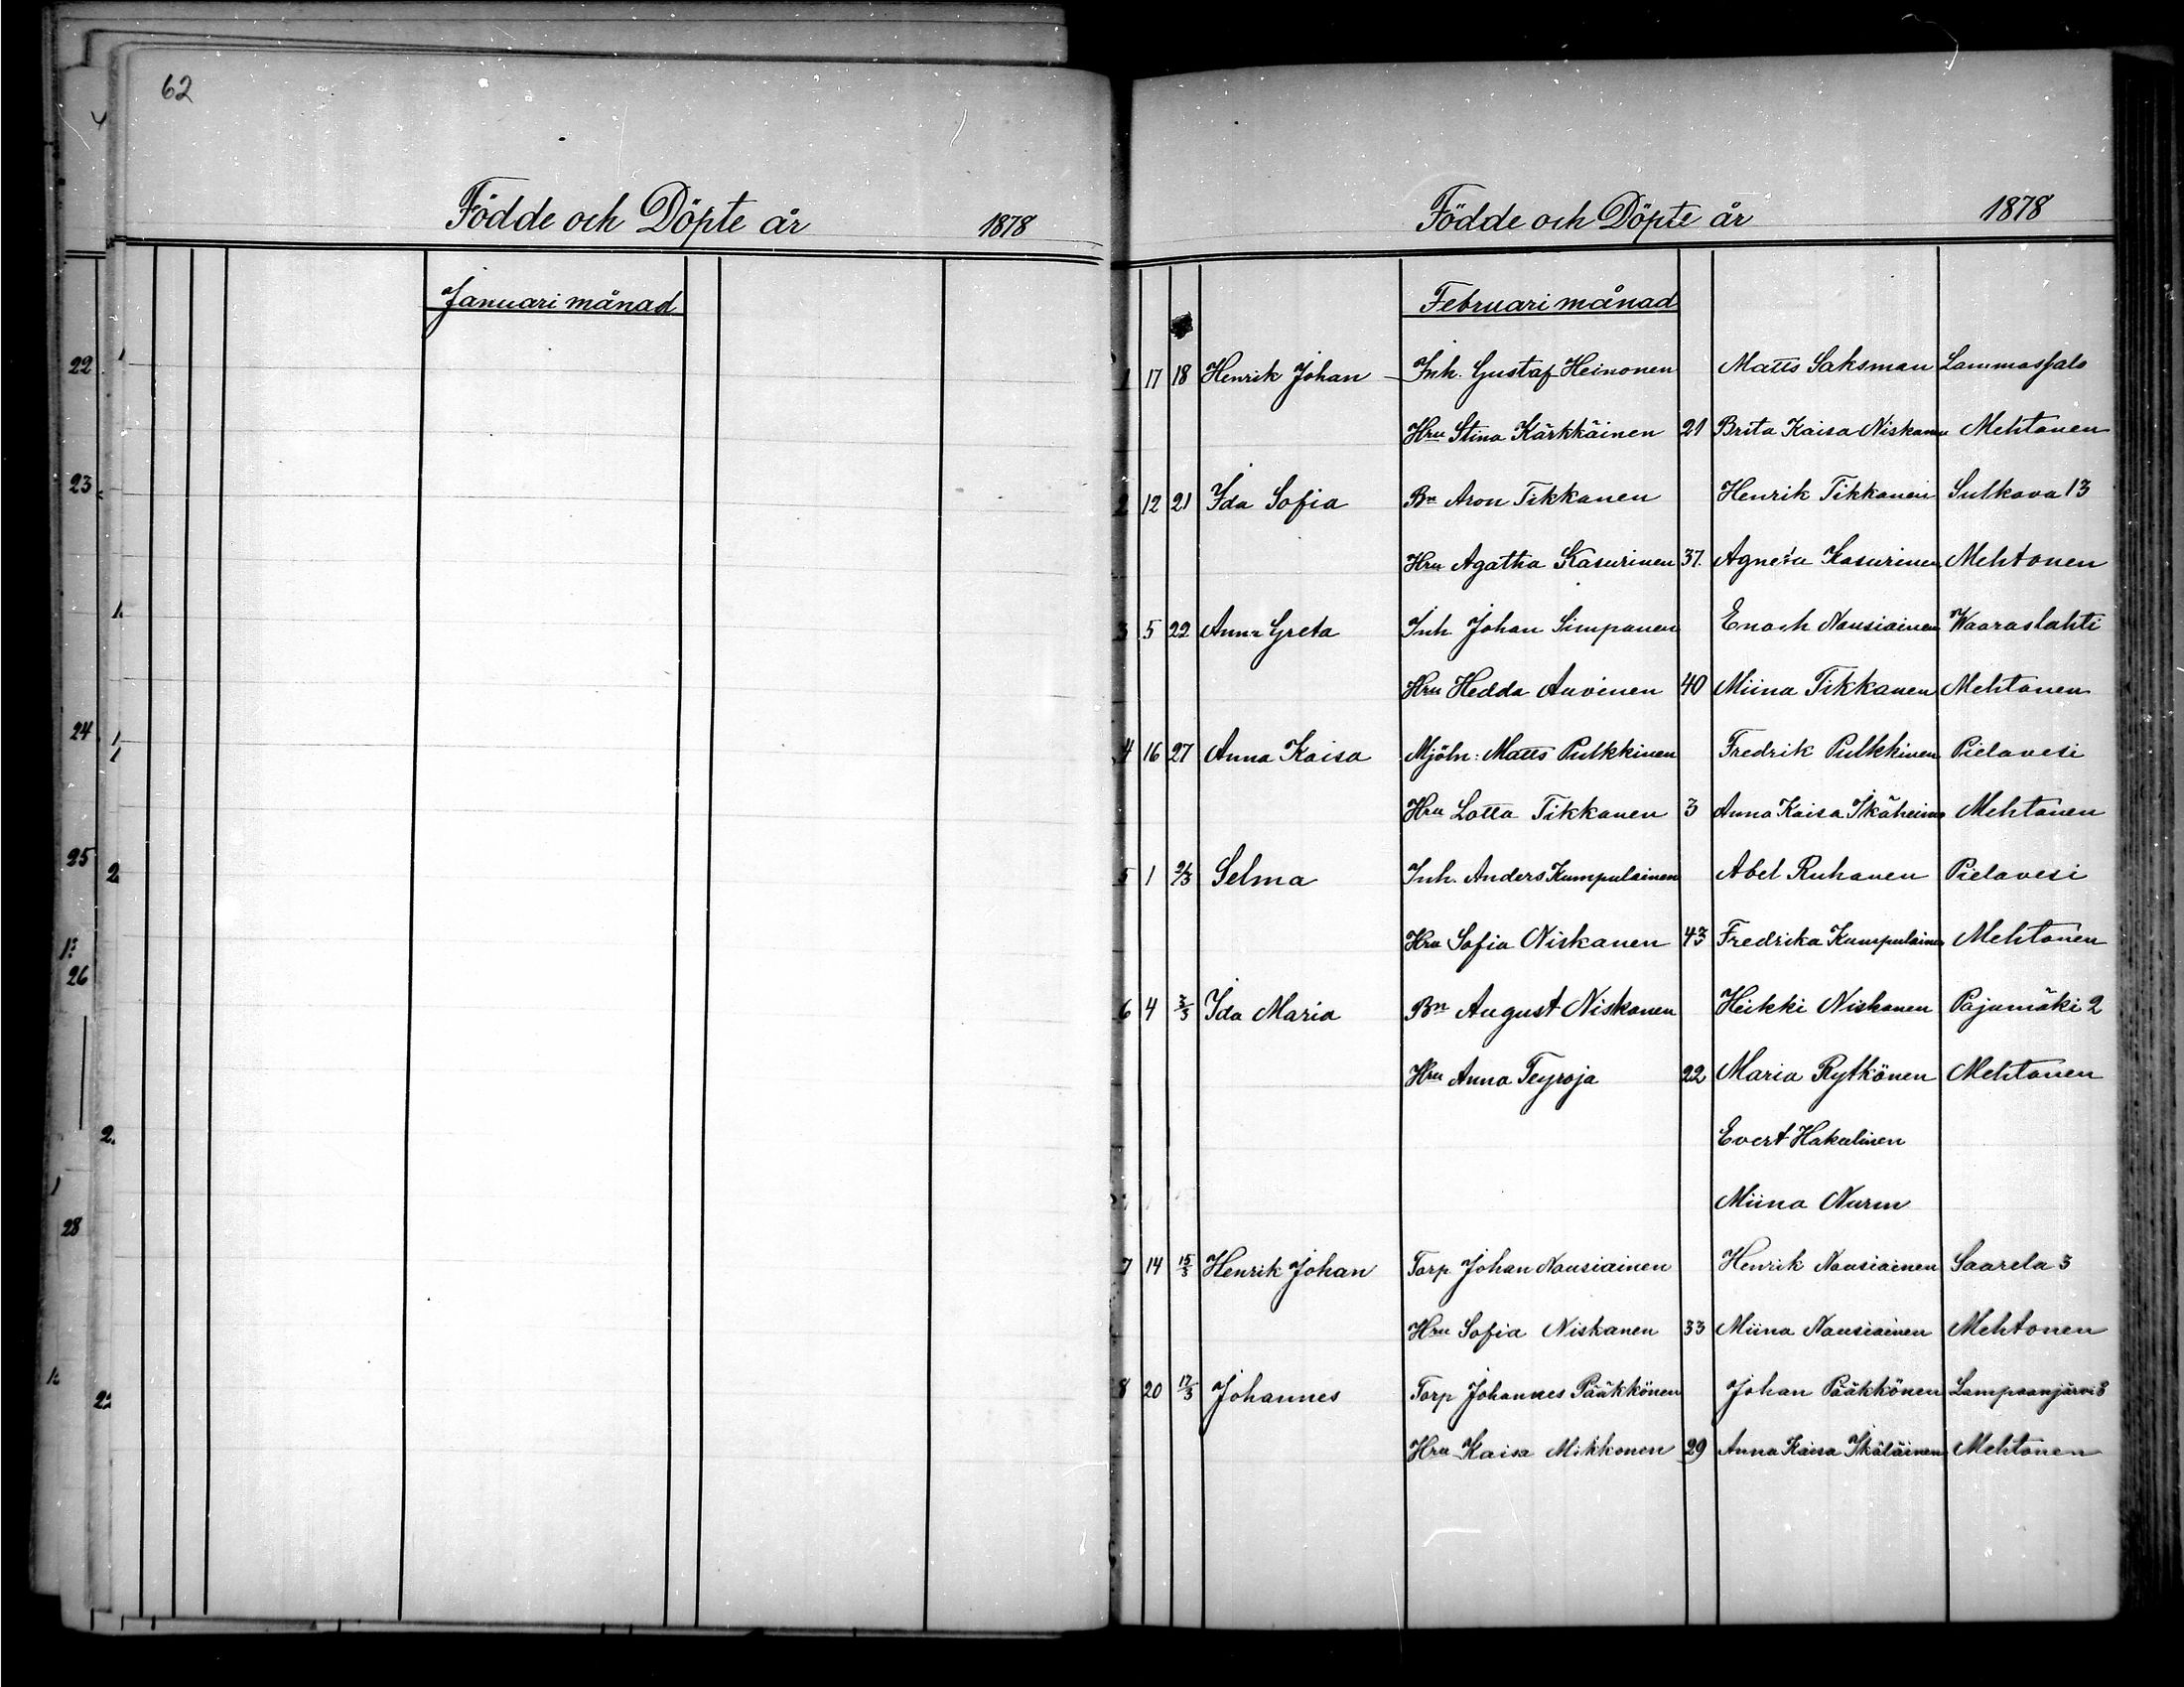 62
Födde och Döpte år 1878
Januari månad
22
23
24
25
26
28
Födde och Döpte år 1878
Februari månad
1 17 18 Henrik Johan Inh. Gustaf Heinonen Matts Saksman Lammassalo
Hru Stina Kärkkäinen 21 Brita Kaisa Niskanen Mehtonen
2 12 21 Ida Sofia Bn Aron Tikkanen Henrik Tikkanen Sulkava 13
Hru Agatha Kasurinen 37. Agneta Kasurinen Mehtonen
3 5 22 Anna Greta Inh. Johan Simpanen Enoch Nousiainen Waaraslahti
Hru Hedda Auvinen 40 Miina Tikkanen Mehtonen
4 16 27 Anna Kaisa Mjöln: Matts Pulkkinen Fredrik Pulkkinen Pielavesi
Hru Lotta Tikkanen 3 Anna Kaisa Mehtonen
5 1 2/3 Selma Inh. Anders Kumpulainen Abel Ruhanen Pielavesi
Hru Sofia Niskanen 43 Fredrika Kumpulainen Mehtonen
6 4 3/3 Ida Maria Bn August Niskanen Heikki Niskanen Pajumäki 2
Hru Anna 22 Maria Rytkönen Mehtonen
Evert Hakulinen
Miina Nurm
7 14 15/3 Henrik Johan Torp. Johan Nousiainen Henrik Nousiainen Saarela 3
Hru Sofia Niskanen 33 Miina Nousiainen Mehtonen
8 20 17/3 Johannes Torp Johannes Pääkkönen Johan Pääkkönen Lampaanjärvi 3
Hru Kaisa Mikkonen 29 Anna Kaisa Ikäläinen Mehtonen